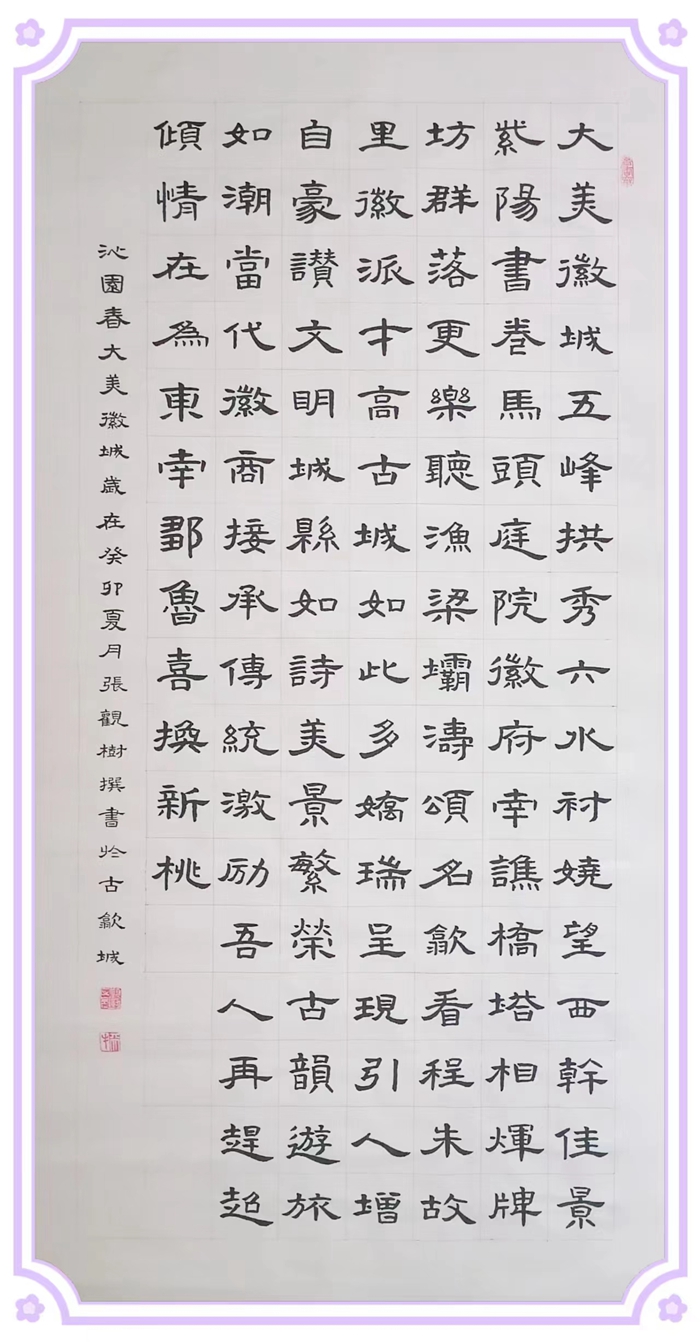 大美徽城五峰拱秀六水衬嬈望西幹佳景
紫陽書卷馬頭庭院徽府南譙橋塔相煇牌
坊群落更樂聽漁梁壩濤頌名歙看程朱故
里徽派才高古城如此多嬌瑞呈現引人增
自豪讚文明城縣如詩美景繁榮古韻遊旅
如潮當代徽商接承傳統激励吾人再趕超
傾情在為東南鄒魯喜換新桃
沁園春大美徽城歲在癸卯夏月張觀樹撰書於古歙城